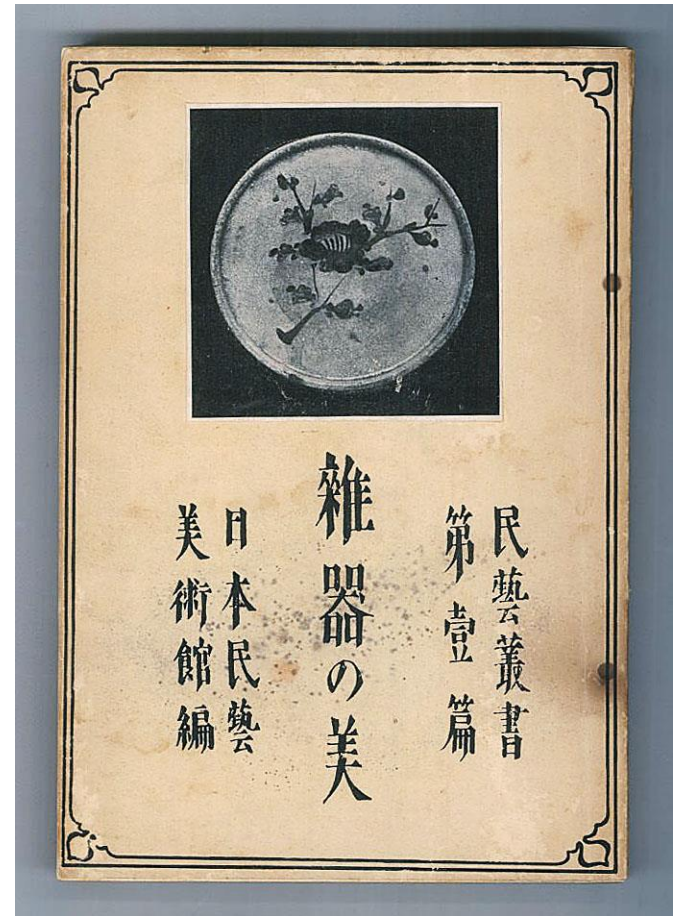 民藝叢書
第壹篇
雜器の美
日本民藝
美術館編